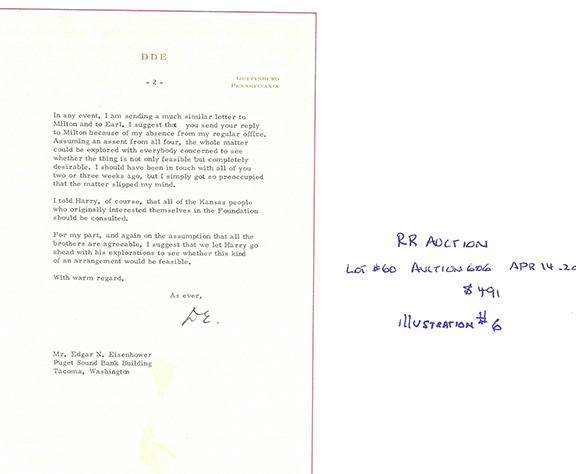 DDE
- 2 -
GETTYSBURG
PENNSYLVANIA
In any event, I am sending a much similar letter to
Milton and to Earl. I suggest that you send your reply
to Milton because of my absence from my regular office.
Assuming an assent from all four, the whole matter
could be explored with everybody concerned to see
whether the thing is not only feasible but completely
desirable. I should have been in touch with all of you
two or three weeks ago, but I simply got so preoccupied
that the matter slipped my mind.
I told Harry, of course, that all of the Kansas people
who originally interested themselves in the Foundation
should be consulted.
For my part, and again on the assumption that all the
brothers are agreeable, I suggest that we let Harry go
ahead with his explorations to see whether this kind
of an arrangement would be feasible.
With warm regard,
As ever,
DE.
Mr. Edgar N. Eisenhower
Puget Sound Bank Building
Tacoma, Washington
RR AUCTION
LOT #60 AUCTION 606 APR 14-20
$491
ILLUSTRATION # 6